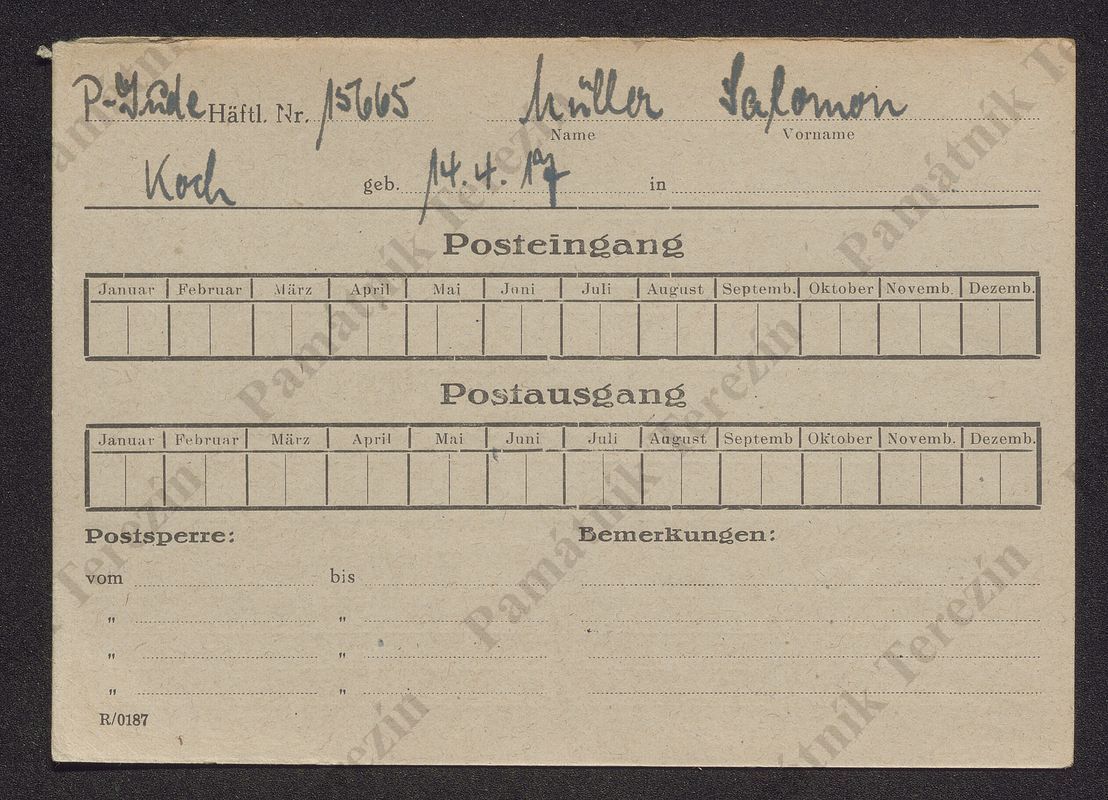 P-Jude Häftl. Nr. 15665 Müller Salomon
Name Vorname
Koch geb. 14. 4. 17 in
Posteingang
Januar Februar März April Mai Juni Juli August Septemb. Oktober Novemb. Dezemb.
Postausgang
Januar Februar März April Mai Juni Juli August Septemb Oktober Novemb. Dezemb.
Postsperre: Bemerkungen:
vom bis
" "
" "
" "
R/0187
Památník Terezín